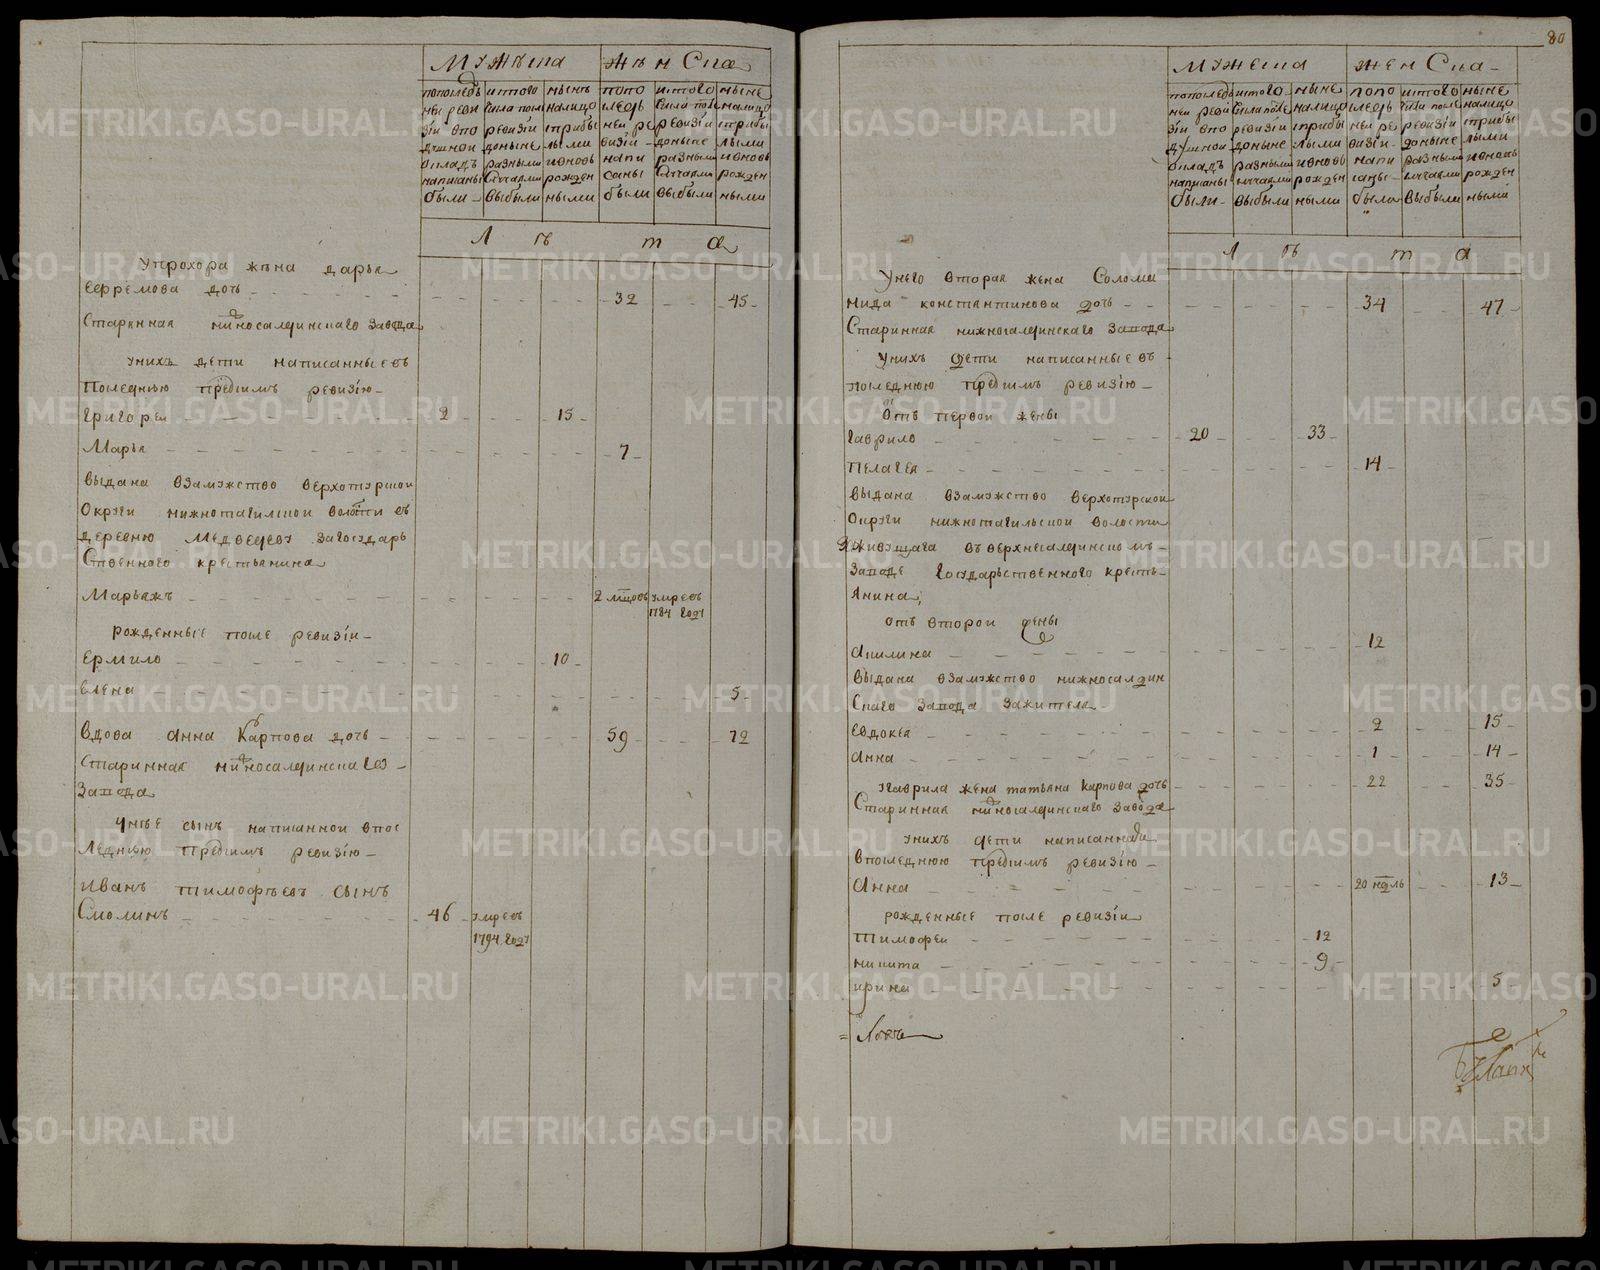 Мужеска
Женска
пополед
ней реви
зіи впо
душной
окладъ
написаны
были
изтого
числа посл
ревизіи
доныне
разными
случаями
выбыли
ныне
налицо
сприбы
лыми
ивновь
рожден
ными
попо
следь
ней ре
визіи
напи
саны
были
изтого
числа посл
ревизіи
доныне
разными
случаями
выбыли
ныне
налицо
сприбы
лыми
ивновь
рожден
ными
Л ѣ т а
Упрохора жѣна дарья
Ефремова дочь 32 45
Старинная нижносалдинскаго завода
унихъ дети написанные въ
Последнюю предсимъ ревизію
Григореи 2 15
Марья 7
выдана взамужство верхотурскои
Округи нижнотагилскои волости въ
деревню Медведеву загосударь
ственного крестьянина
Марьяжъ умре въ
1784 году
рожденные после ревизіи
Ермило 10
Елена 5
Вдова Анна Карпова дочь 59 72
Старинная нижносалдинскагоз
Завода
Унѣе сынъ написаннои впос
Леднюю предсимъ ревизію
Иванъ тимофѣевъ сынъ
Смолинъ 46 умре въ
1794 году
80
Мужеска
Женска
пополедь
ней реви
зіи впо
душной
окладъ
написаны
были
изтого
числа после
ревизіи
доныне
разными
случаями
выбыли
ныне
налицо
сприбы
лыми
ивновь
рожден
ными
попо
следь
ней ре
визіи
напи
саны
были
изтого
числа после
ревизіи
доныне
разными
случаями
выбыли
ныне
налицо
сприбы
лыми
ивновь
рожден
ными
Л ѣ т а
Унего вторая жена Соломо
нида константинова дочь 34 47
Старинная нижносалдинскаго завода
Унихъ дети написанные въ
последнюю предсимъ ревизію
Отъ первои жены
Гаврило 20 33
Пелагея 14
выдана взамужство верхотурскои
Округи нижнотагильскои волости
живущага въверхнесалдинскомъ
Заводе Государьственного кресть
янина
отъ второи жены
Акилина 12
Выдана взамужство нижносалдин
Скаго Завода Зажителя
Евдокея 2 15
Анна 1 14
Угаврила жена татьяна карпова дочь 22 35
Старинная нижносалдинскаго завода
унихъ дети написанная
впоследнюю предсимъ ревизію
Анна 20 недѣль 13
рожденные после ревизіи
Тимофеи 12
Никита 9
Ирина 5
METRIKI.GASO-URAL.RU